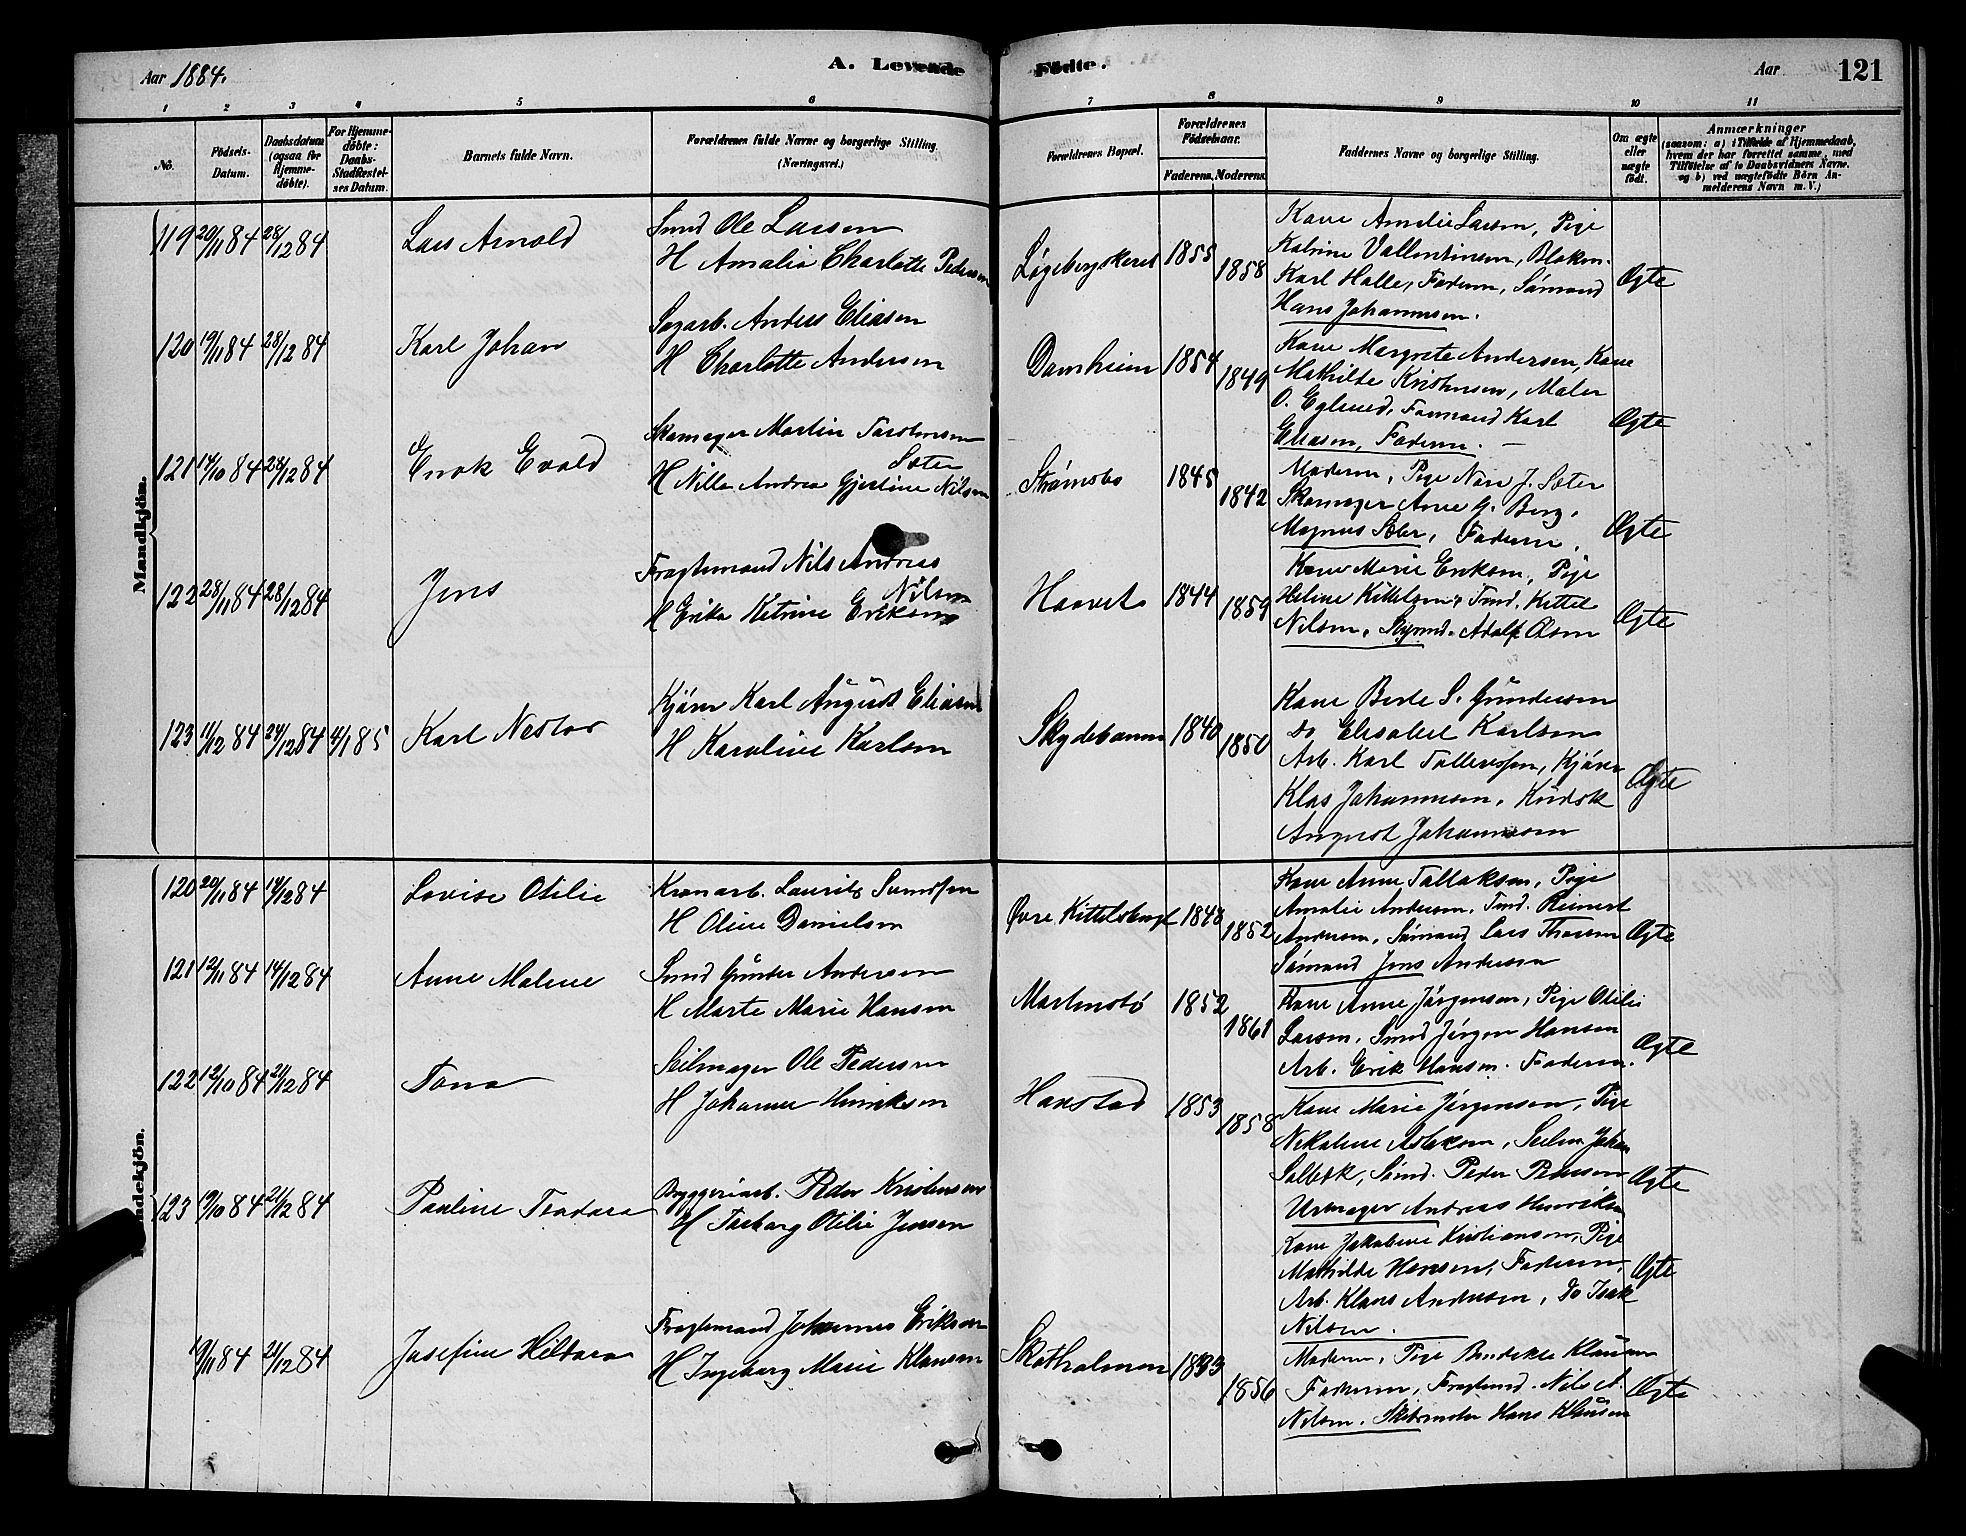 Aar 1884.
A. Levende Födte.
Aar 121
1 2 3 4 5 6 7 8 9 10 11
No.
Födsels-Datum.
Daabsdatum (ogsaa for Hjemmedöbte).
For Hjemmedöbte: Daabs-Stadfæstelses Datum.
Barnets fulde Navn.
Forældrenes fulde Navne og borgerlige Stilling. (Næringsvei.)
Forældrenes Bopæl.
Forældrenes Födselsaar.
Faderens. Moderens.
Faddernes Navne og borgerlige Stilling.
Om ægte eller uægte födt.
Anmærkninger (saasom: a) i Tilfælde af Hjemmedaab, hvem der har forrettet samme, med Tilföielse af to Daabsvidners Navne, og b) ved uægtefödte Börn Anmelderens Navn m. V.)
Mandkjön.
119 20/11 84 28/12 84 Lars Arnold
Smd Ole Larsen
H Amalia Charlotte Pedersen
1855 1858
Kone Amelie Larsen, Pige
Katrine Vallentinsen, Blokm.
Karl Halle, Faderen, Sömand
Hans Johannesen.
Ægte
120 19/11 84 28/12 84 Karl Johan
Sagarb. Anders Eliasen
H Charlotte Andersen
Damheim 1854 1849
Kone Margrete Andersen, Kone
Mathilde Kristensen, Maler
O. Eglund, Formand Karl
Eliasen, Faderen. —
Ægte
121 14/10 84 28/12 84 Enok Evald
Skomager Martin Torstensen
Sæter
H Nilla Andrea Gjertine Nilsen
Strømsbo 1845 1842
Moderen, Pige J. Sæter
Skomager Arne G. Berg,
Magnus Sæter, Faderen.
Ægte
122 28/11 84 28/12 84 Jens
Fragtemand Nils Andreas
Nilsen
H Erika Katrine Eriksen
1844 1859
Kone Marie Eriksen, Pige
Heline Kittelsen, Tmd. Kittel
Nilsen, Adolf Olsen
Ægte
123 11/12 84 24/12 84 4/1 85 Karl Nestor
Kjörer Karl August Eliasen
H Karoline Karlsen
Skydebanen 1840 1850
Kone Berte S. Gundersen
do Elisabet Karlsen
Arb. Karl Tallevsen, Kjörer
Klas Johannesen, Kudsk
August Johannesen
Ægte
120 20/11 84 14/12 84 Lovise Otilie
Kranarb. Laurits Sundsen
H Oline Danielsen
Øvre Kittelsbugt 1848 1852
Kone Anne Tallaksen, Pige
Amalie Andersen, Tmd. Reinert
Andersen, Sömand Lars Thorsen
Sömand Jens Andersen
Ægte
121 12/11 84 14/12 84 Anne Malene
Smd Gunder Andersen
H Marte Marie Hansen
Martinsbö 1852 1861
Kone Anne Jörgensen, Pige Otilie
Larsen, Smd Jörgen Hansen
Arb. Erik Hansen. Faderen.
Ægte
122 12/10 84 21/12 84 Tona
Seilmager Ole Pedersen
H Johanne Henriksen
Harstad 1853 1858
Kone Marie Jörgensen, Pige
Nikoline Aslaksen, Seilm. Johan
Solbæk, Sömd. Peder Pedersen
Urmager Andreas Henriksen
Ægte
123 9/10 84 21/12 84 Pauline Teodora
Bryggeriarb. Peder Kristensen
H Torborg Otilie Jensen
Kone Jakobine Kristiansen, Pige
Mathilde Hansen, Faderen,
Arb. Klaus Andersen, Do Isak
Nilsen.
Ægte
19/11 84 21/12 84 Josefine Hildara
Fragtemand Johannes Eriksen
H Ingeborg Marie Klausen
Skotholmen 1853 1856
Moderen, Pige Bendikte Klausen
Faderen, Fragtmd. Nils A.
Nilsen. Skibstmdm Hans Klausen
Ægte